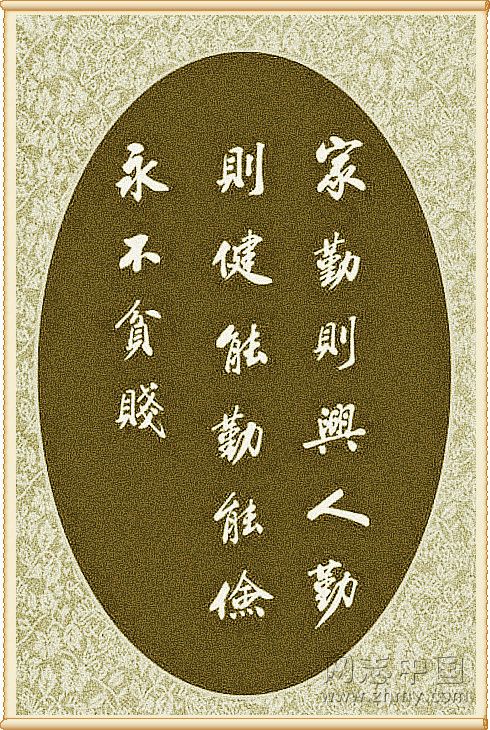 家勤則興人勤
則健能勤能儉
永不貧賤
网志中国